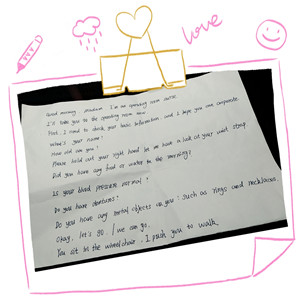 love
Good morning, madam. I'm an operating room nurse.
I'll take you to the operating room now
First, I need to check your basic information and I hope you can cooperate.
What's your name?
How old are you?
Please hold out your right hand let me have a look at your wrist strap.
Did you have any food or water in the morning?
Is your blood pressure normal?
Do you have dentures?
Do you have any metal objects on you? such as rings and necklaces.
Okay, let's go. / we can go.
You sit in the wheelchair, I push you to walk